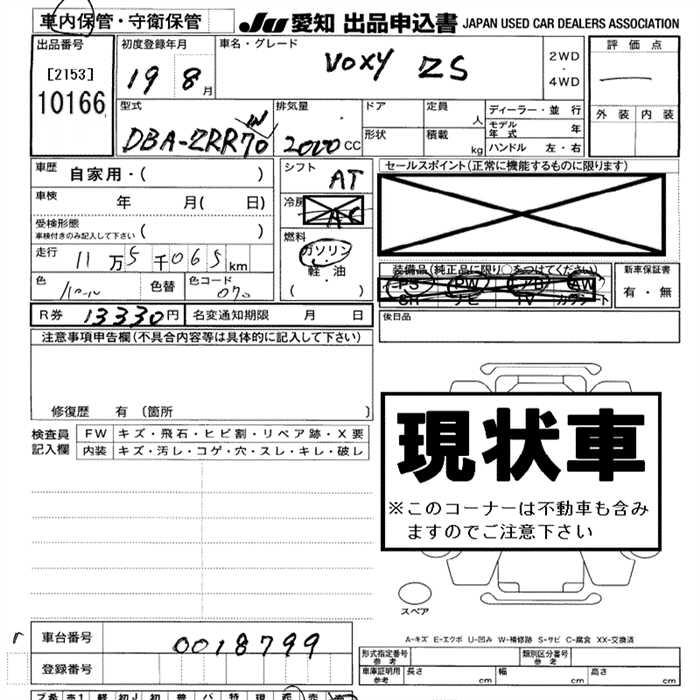 車内保管・守衛保管
JU 愛知 出品申込書 JAPAN USED CAR DEALERS ASSOCIATION
出品番号 [2153] 10166
初度登録年月 19 8月
車名・グレード VOXY ZS
2WD・4WD
評価点
外装 内装
型式 DBA-ZRR70W
排気量 2000CC
ドア 形状
定員 人
積載 kg
ディーラー・並行
モデル年式 年
ハンドル 左・右
車歴 自家用・( )
車検 年 月( 日)
受検形態 ( )
車検付きのみ記入して下さい
走行 11万5千065km
色 色替 色コード 070
シフト AT
冷房 AC
燃料 ガソリン・軽・油 ( )
セールスポイント(正常に機能するものに限ります)
装備品(純正品に限り○をつけてください)
PS PW AW
SR ナビ TV カワシート
新車保証書 有・無
R券 13330円 名変通知期限 月 日
後日品
注意事項申告欄(不具合内容等は具体的に記入して下さい)
修復歴 有 [箇所 ]
検査員記入欄
FW キズ・飛石・ヒビ割・リペア跡・X要
内装 キズ・汚レ・コゲ・穴・スレ・キレ・破レ
現状車
※このコーナーは不動車も含み
ますのでご注意下さい
スペア
A-キズ E-エクボ U-凹み W-補修跡 S-サビ C-腐食 XX-交換済
車台番号 0018799
登録番号
形式指定番号 参考 類別区分番号 参考
車庫証明用 参考 長さ cm 幅 cm 高さ cm